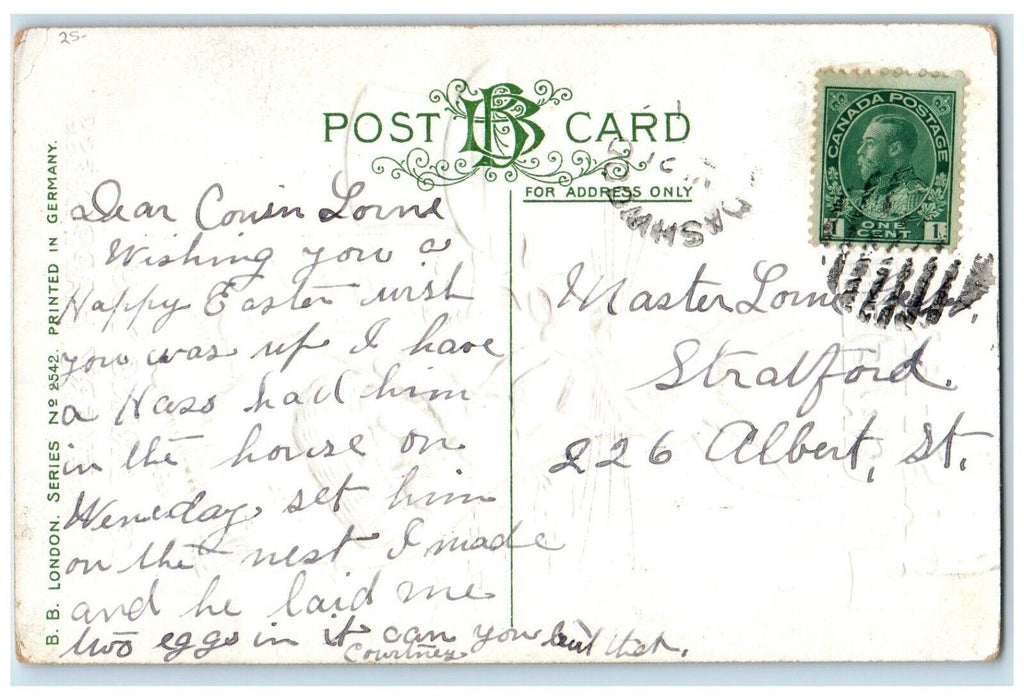 25-
POST BB CARD
FOR ADDRESS ONLY
CANADA POSTAGE
1 ONE CENT 1
Dear Cousin Lorne
Wishing you a
Happy Easter wish
you was up I have
a Hass had him
in the house on
Weneday set him
on the nest I made
and he laid me
two eggs in it can you beat that.
Courtney
Master Lorne
Stratford.
226 Albert, St.
B. B. LONDON. SERIES Nº 2542. PRINTED IN GERMANY.